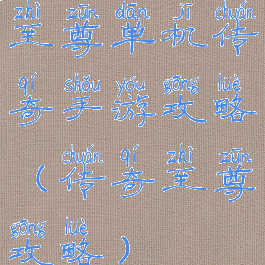 zhì zūn dān jī chuán
至尊单机传
qí shǒu yóu gōng lüè
奇手游攻略
chuán qí zhì zūn
(传奇至尊
gōng lüè
攻略)